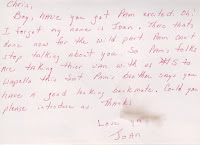 Chris,
Boy, have you got Pam excited. Oh!
I forgot my name is Joan. Thats thats
done now for the wild part. Pam can't
stop talking about you. So Pam's folks
are taking their van with us #15 to
Wapello this Sat. Pam's brother says you
have a good looking backmate. Could you
please introduce us. Thanks
Love ya
Joan